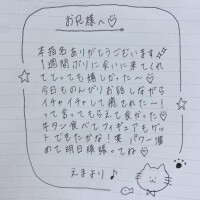 お兄様へ♡
本指名ありがとうございます✨
1週間ぶりに会いに来てくれて
とっても嬉しかった〜♡
今日ものんびりお話しながら
イチャイチャして癒された〜!
って言ってもらえて良かった♡
牛タン食べてフィギュアもゲット
できたかな!笑 パワー溜
めて明日頑張ってね♡
えまより♪